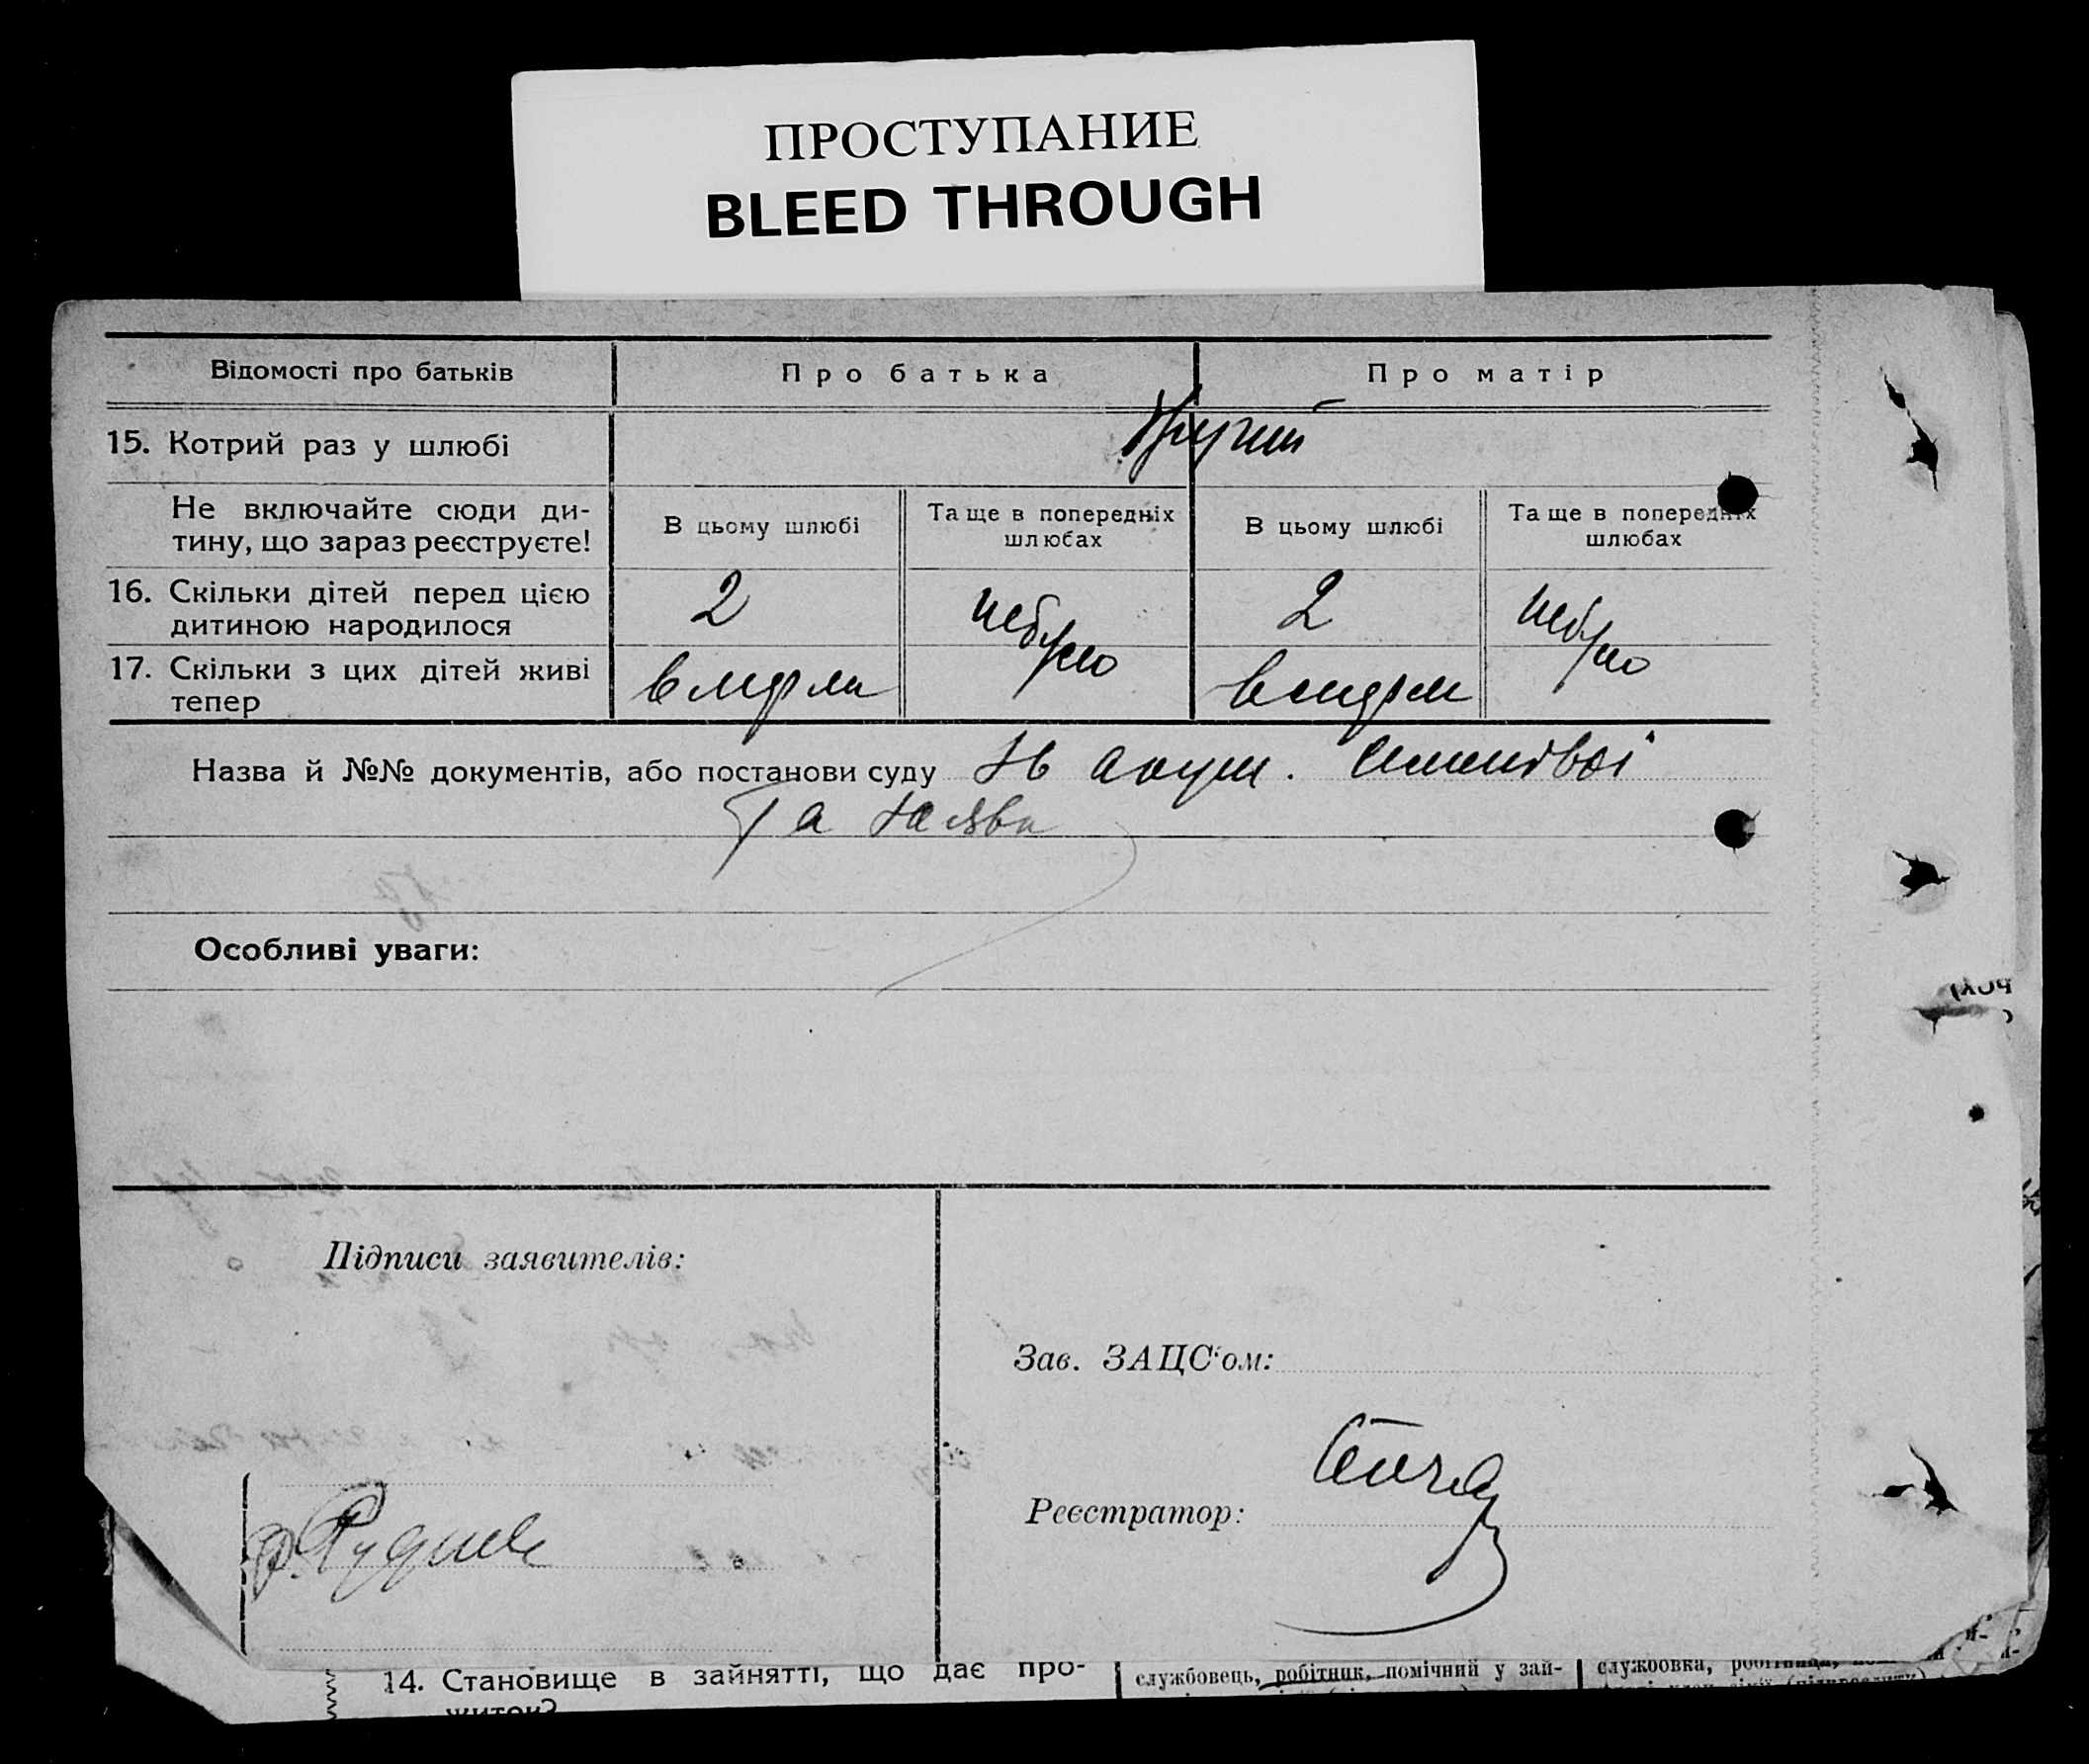 ПРОСТУПАНИЕ
BLEED THROUGH
Відомості про батьків
Про батька
Про матір
15. Котрий раз у шлюбі
Другий
Не включайте сюди ди-
тину, що зараз реєструєте!
В цьому шлюбі
Та ще в попередніх
шлюбах
В цьому шлюбі
Та ще в попередніх
шлюбах
16. Скільки дітей перед цією
дитиною народилося
2
небуло
2
небуло
17. Скільки з цих дітей живі
тепер
вмерли
вмерли
Назва й №№ документів, або постанови суду
та заява
Особливі уваги:
Підписи заявителів:
Зав. ЗАЦС'ом:
Реєстратор:
14. Становище в зайнятті, що дає про-
житок?
службовець, робітник, помічний у зай-
службовка, робітниця,